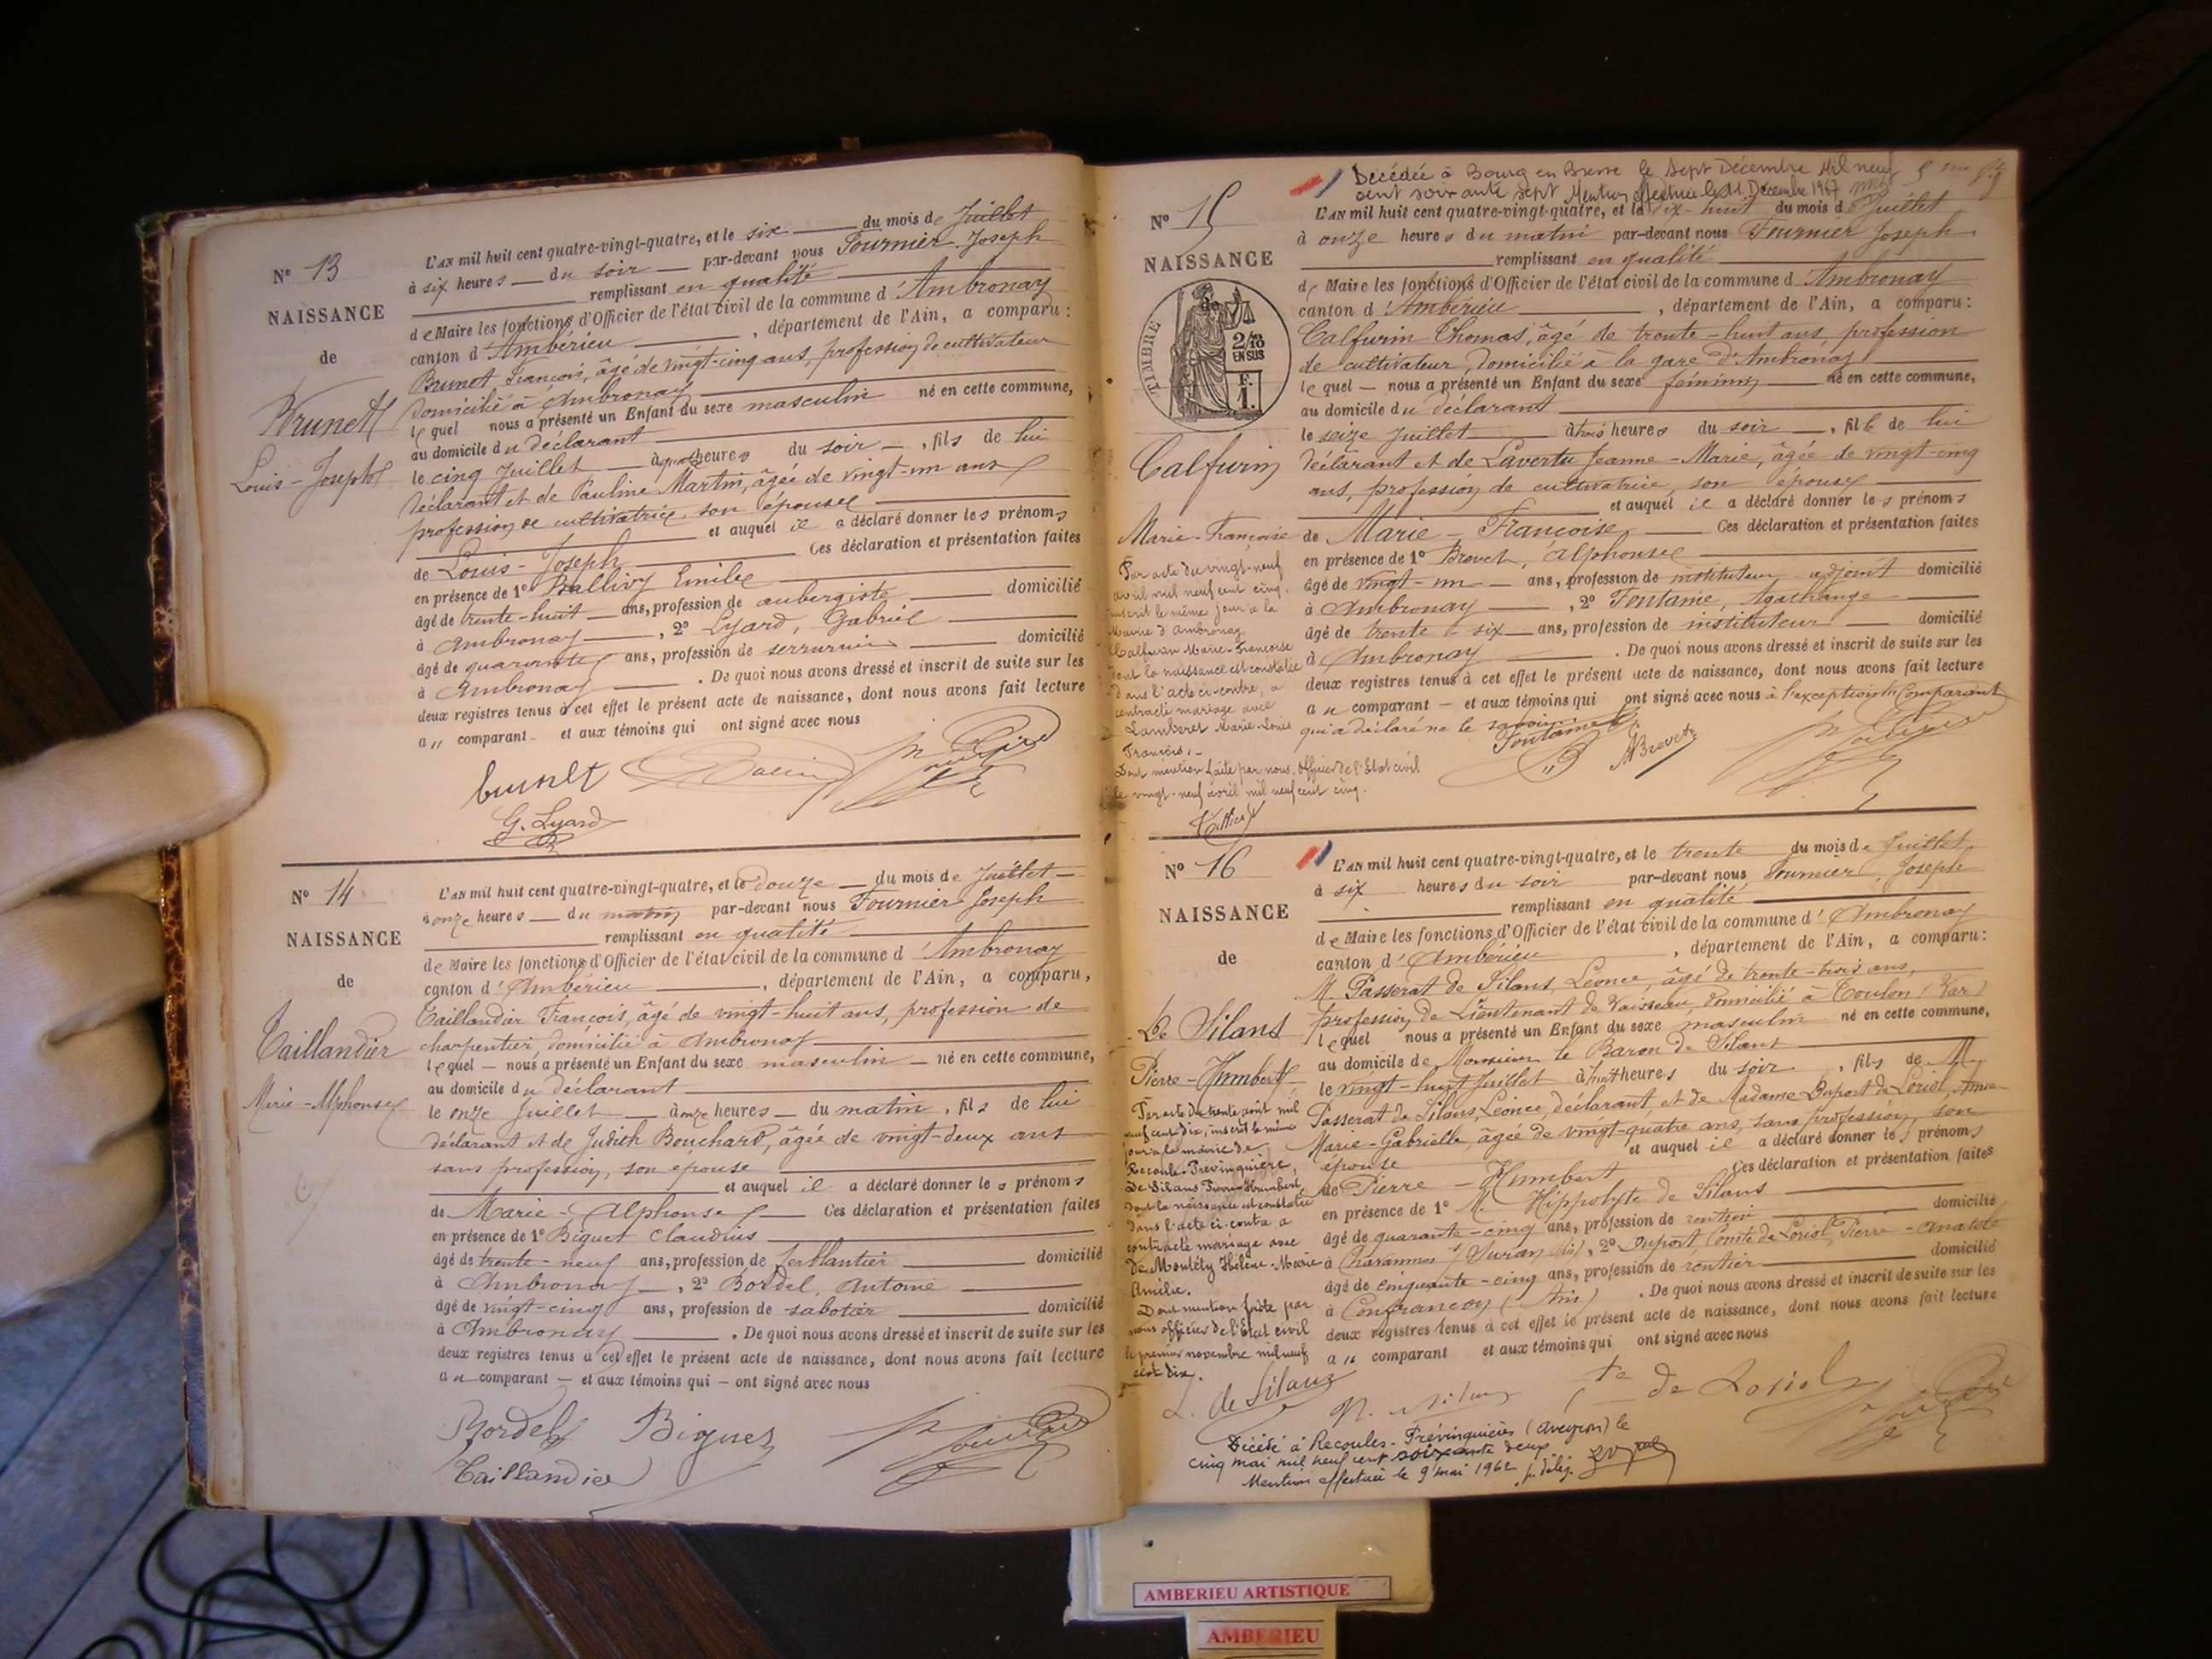 N° 13
NAISSANCE
de
Brunet
Louis-Joseph
L'AN mil huit cent quatre-vingt-quatre, et le six du mois de Juillet
à six heures du soir par-devant nous Fournier Joseph
remplissant en qualité
de Maire les fonctions d'Officier de l'état civil de la commune d'Ambronay
canton d'Ambérieu, département de l'Ain, a comparu :
Brunet François, âgé de vingt-cinq ans, profession de cultivateur
domicilié à Ambronay
lequel nous a présenté un Enfant du sexe masculin né en cette commune,
au domicile du déclarant
le cinq Juillet à quatre heures du soir, fils de lui
déclarant et de Pauline Martin, âgée de vingt-un ans
profession de cultivatrice son épouse
et auquel il a déclaré donner les prénoms
de Louis-Joseph Ces déclaration et présentation faites
en présence de 1° Ballivy Emile
âgé de trente-huit ans, profession de aubergiste domicilié
à Ambronay, 2° Lyard, Gabriel
âgé de quarante ans, profession de serrurier domicilié
à Ambronay. De quoi nous avons dressé et inscrit de suite sur les
deux registres tenus à cet effet le présent acte de naissance, dont nous avons fait lecture
au comparant et aux témoins qui ont signé avec nous
brunet
G. Lyard
N° 14
NAISSANCE
de
Taillandier
Marie-Alphonse
L'AN mil huit cent quatre-vingt-quatre, et le douze du mois de Juillet
à onze heures du matin par-devant nous Fournier Joseph
remplissant en qualité
de Maire les fonctions d'Officier de l'état civil de la commune d'Ambronay
canton d'Ambérieu, département de l'Ain, a comparu,
Taillandier François, âgé de vingt-huit ans, profession de
charpentier, domicilié à Ambronay
lequel nous a présenté un Enfant du sexe masculin né en cette commune,
au domicile du déclarant
le onze Juillet à onze heures du matin, fils de lui
déclarant et de Judith Bouchard, âgée de vingt-deux ans
sans profession, son épouse
et auquel il a déclaré donner les prénoms
de Marie-Alphonse Ces déclaration et présentation faites
en présence de 1° Biguet Claudius
âgé de trente-neuf ans, profession de ferblantier domicilié
à Ambronay, 2° Bordel, Antoine
âgé de vingt-cinq ans, profession de sabotier domicilié
à Ambronay. De quoi nous avons dressé et inscrit de suite sur les
deux registres tenus à cet effet le présent acte de naissance, dont nous avons fait lecture
au comparant et aux témoins qui ont signé avec nous
Bordel Biguet
Taillandier
Décédée à Bourg en Bresse le Sept Décembre Mil neuf
cent soixante sept Mention effectuée le 11 Décembre 1967
N° 15
NAISSANCE
de
TIMBRE
2/10
EN SUS
F.
1.
Calfurin
Marie-Françoise
Par acte du vingt-neuf
avril mil neuf cent cinq,
inscrit le même jour à la
Mairie d'Ambronay
Calfurin Marie-Françoise
dont la naissance est constatée
dans l'acte ci-contre, a
contracté mariage avec
Lamberet Marie-Louis
François.
Dont mention faite par nous, Officier de l'Etat civil
le vingt-neuf avril mil neuf cent cinq.
L'AN mil huit cent quatre-vingt-quatre, et le dix-huit du mois de Juillet
à onze heures du matin par-devant nous Fournier Joseph
remplissant en qualité
de Maire les fonctions d'Officier de l'état civil de la commune d'Ambronay
canton d'Ambérieu, département de l'Ain, a comparu :
Calfurin Thomas, âgé de trente-huit ans, profession
de cultivateur, domicilié à la gare d'Ambronay
lequel nous a présenté un Enfant du sexe féminin né en cette commune,
au domicile du déclarant
le seize Juillet à trois heures du soir, fille de lui
déclarant et de Lavertu Jeanne-Marie, âgée de vingt-cinq
ans, profession de cultivatrice, son épouse
et auquel il a déclaré donner les prénoms
de Marie-Françoise Ces déclaration et présentation faites
en présence de 1° Brevet, Alphonse
âgé de vingt-un ans, profession de instituteur-adjoint domicilié
à Ambronay, 2° Fontaine, Agathange
âgé de trente-six ans, profession de instituteur domicilié
à Ambronay. De quoi nous avons dressé et inscrit de suite sur les
deux registres tenus à cet effet le présent acte de naissance, dont nous avons fait lecture
au comparant et aux témoins qui ont signé avec nous à l'exception du Comparant
qui a déclaré ne le savoir
Fontaine ABrevet
N° 16
NAISSANCE
de
De Silans
Pierre-Humbert
Par acte du trente août mil
neuf cent dix, inscrit le même
jour à la mairie de
Recoules-Prévinquières,
De Silans Pierre Humbert,
dont la naissance est constatée
dans l'acte ci-contre a
contracté mariage avec
De Montéty Hélène-Marie
Amélie.
Dont mention faite par
nous officier de l'Etat civil
le premier novembre mil neuf
cent dix.
L'AN mil huit cent quatre-vingt-quatre, et le trente du mois de Juillet
à six heures du soir par-devant nous Fournier, Joseph
remplissant en qualité
de Maire les fonctions d'Officier de l'état civil de la commune d'Ambronay
canton d'Ambérieu, département de l'Ain, a comparu :
M. Passerat de Silans, Léonce, âgé de trente-trois ans,
profession de Lieutenant de Vaisseau, domicilié à Toulon (Var)
lequel nous a présenté un Enfant du sexe masculin né en cette commune,
au domicile de Monsieur le Baron de Silans
le vingt-huit Juillet à huit heures du soir, fils de M.
Passerat de Silans, Léonce, déclarant, et de Madame Duport de Loriol,
Marie-Gabrielle, âgée de vingt-quatre ans, sans profession, son
épouse et auquel il a déclaré donner les prénoms
de Pierre-Humbert Ces déclaration et présentation faites
en présence de 1° M. Hippolyte de Silans
âgé de quarante-cinq ans, profession de rentier domicilié
à Chavannes s/ Suran (Ain), 2° Duport, Comte de Loriol, Pierre-Anatole
âgé de cinquante-cinq ans, profession de rentier domicilié
à Confrançon (Ain). De quoi nous avons dressé et inscrit de suite sur les
deux registres tenus à cet effet le présent acte de naissance, dont nous avons fait lecture
au comparant et aux témoins qui ont signé avec nous
L. de Silans de Loriol
Décédé à Recoules-Prévinquières (Aveyron) le
cinq mai mil neuf cent soixante deux
Mention effectuée le 9 mai 1962 p. délég.
AMBERIEU ARTISTIQUE
AMBERIEU